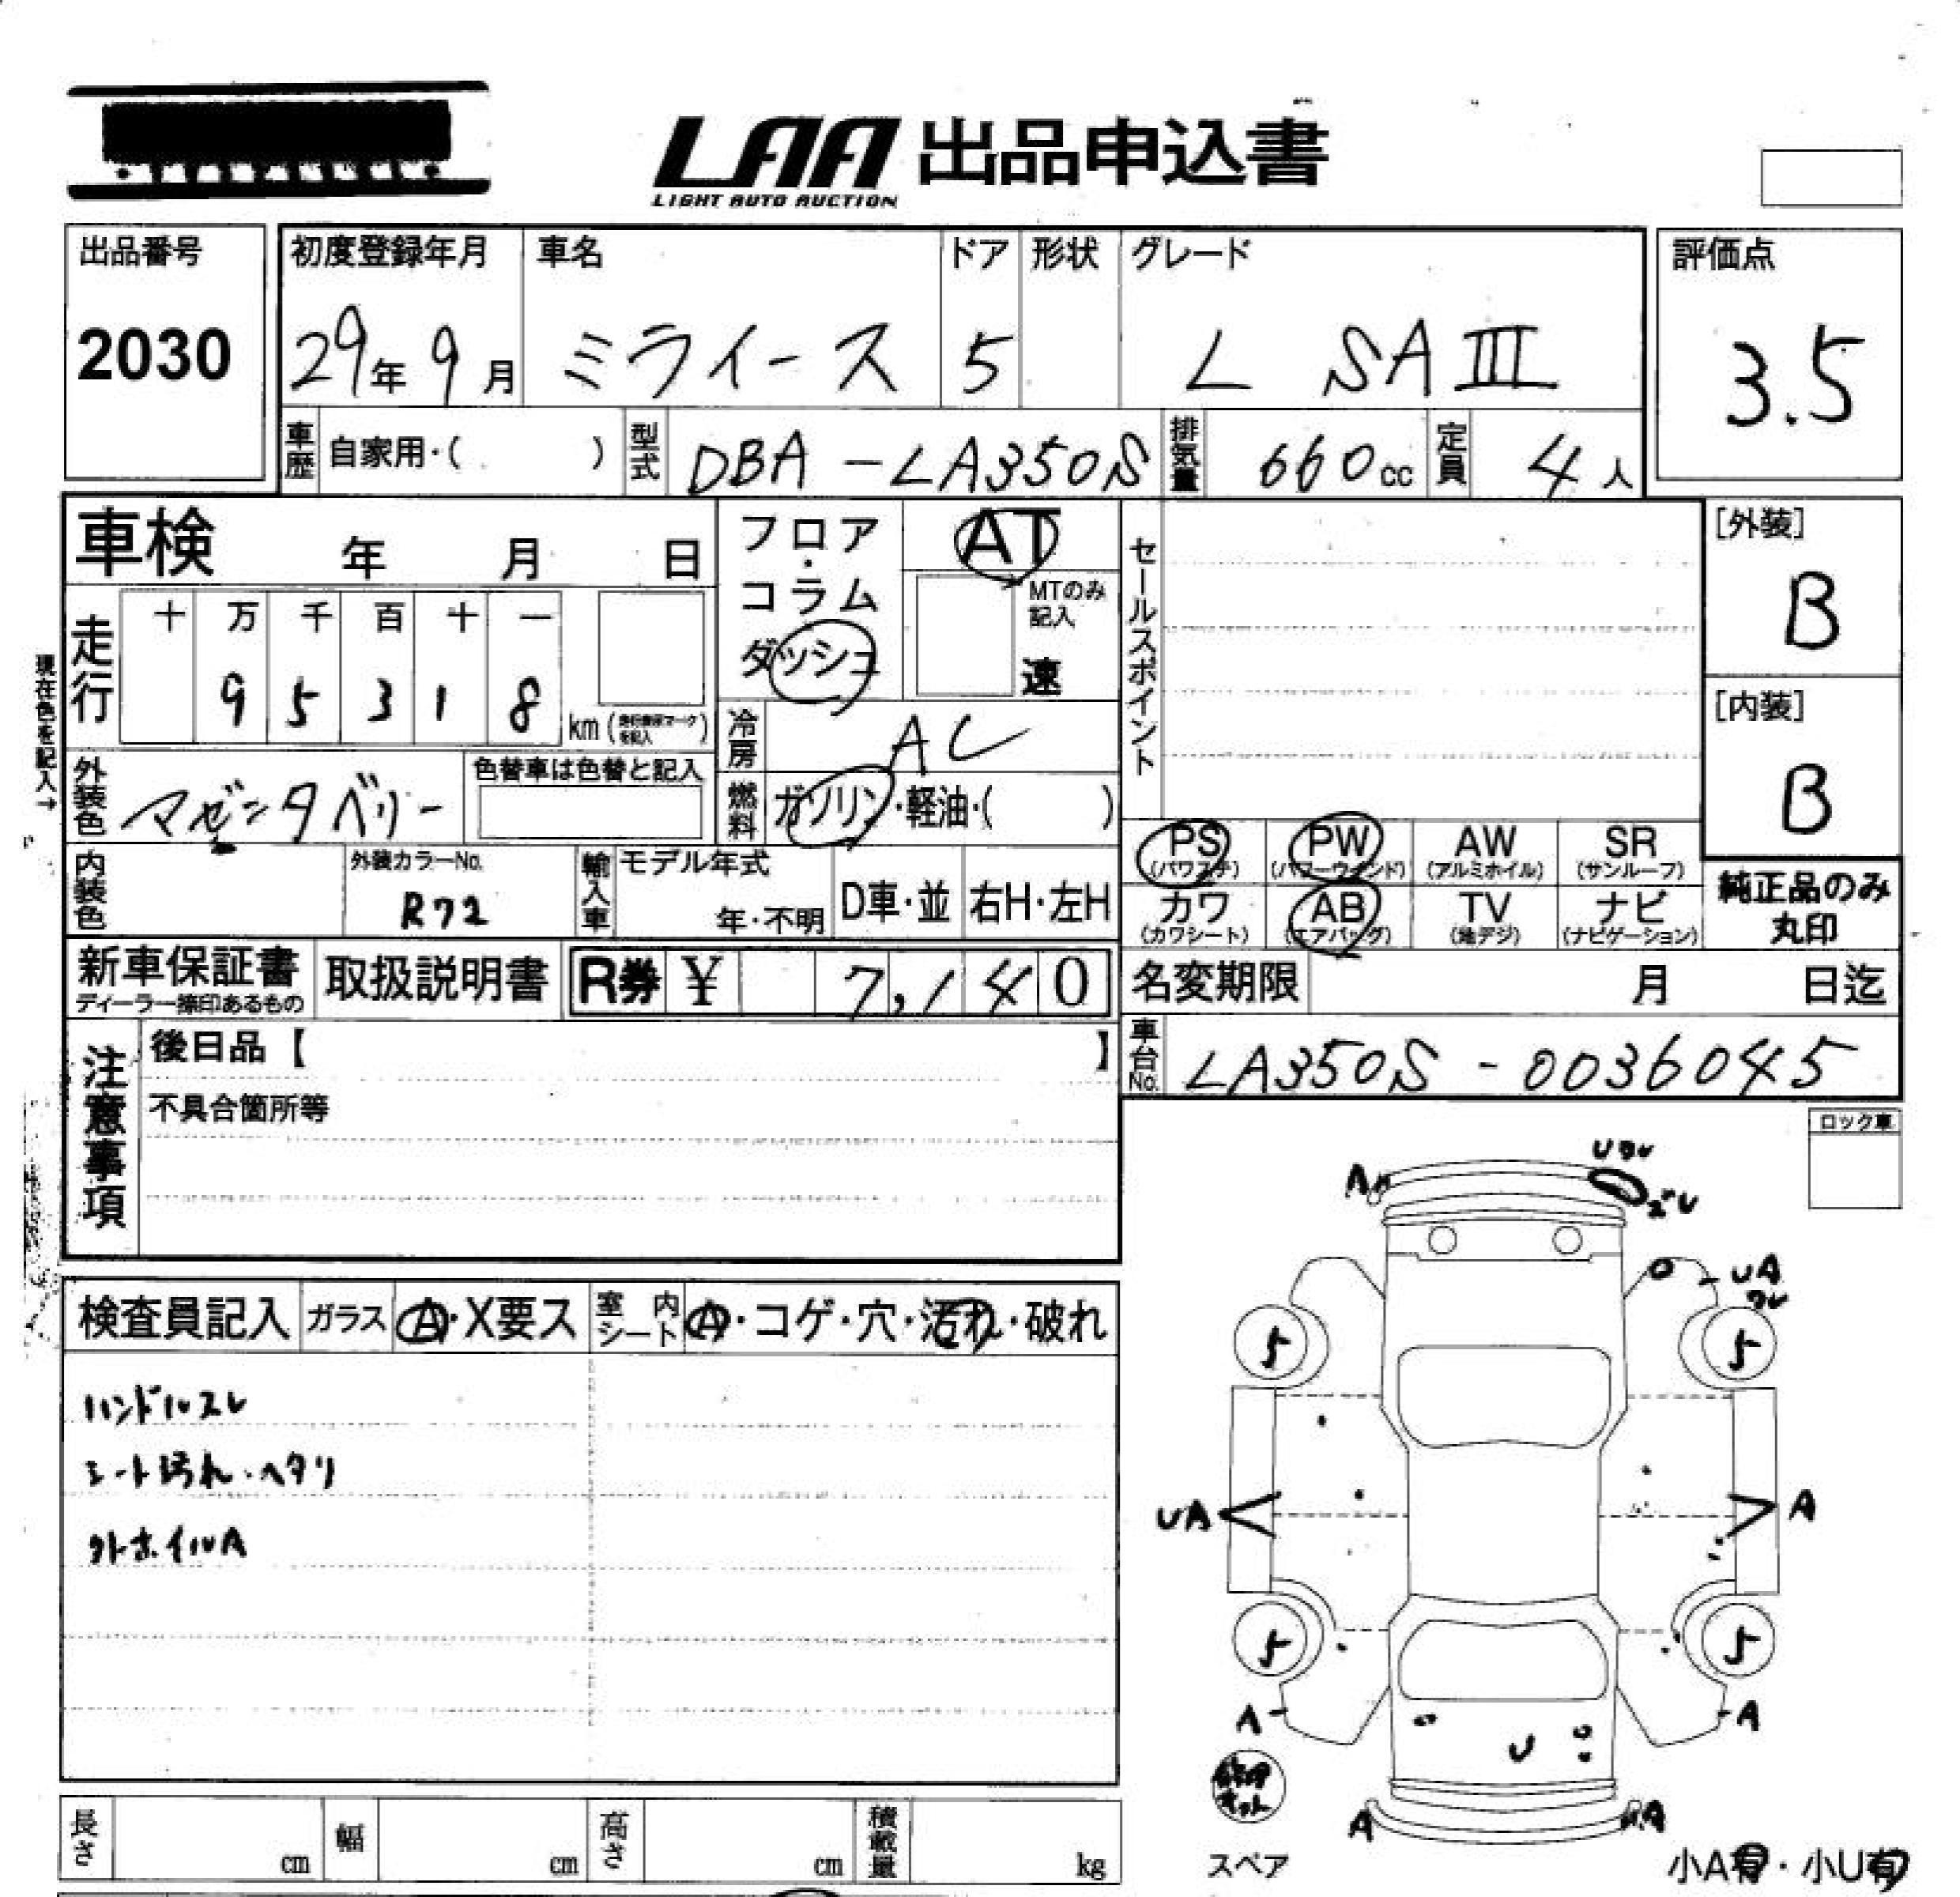 LAA 出品申込書
LIGHT AUTO AUCTION
出品番号
2030
初度登録年月
29年 9月
車名
ミライース
ドア
5
形状
グレード
L SAⅢ
評価点
3.5
車歴 自家用・( )
型式 DBA-LA350S
排気量 660cc
定員 4人
車検 年 月 日
フロア・コラム ダッシュ
AT
MTのみ記入
速
セールスポイント
[外装]
B
[内装]
B
現在色を記入→
走行
十 万 千 百 十 一
9 5 3 1 8
km
冷房 AC
外装色 マゼンタベリー
色替車は色替と記入
燃料 ガソリン・軽油・( )
内装色
外装カラーNo.
R72
輸入車 モデル年式
年・不明
D車・並 右H・左H
PS (パワステ)
PW (パワーウインド)
AW (アルミホイル)
SR (サンルーフ)
カワ (カワシート)
AB (エアバッグ)
TV (地デジ)
ナビ (ナビゲーション)
純正品のみ丸印
新車保証書
ディーラー捺印あるもの
取扱説明書
R券 ¥ 7,140
名変期限 月 日迄
車台No. LA350S-0036045
注意事項
後日品【 】
不具合箇所等
ロック車
検査員記入 ガラス A・X要ス 室内シート A・コゲ・穴・汚れ・破れ
ハンドルスレ
シート汚れ・ヘタリ
外ホイルA
Uワレ
A
ズレ
UA
ワレ
5 5
UA A
5 5
A A
U
修理キット
A A
スペア
小A有・小U有
長さ cm 幅 cm 高さ cm 積載量 kg